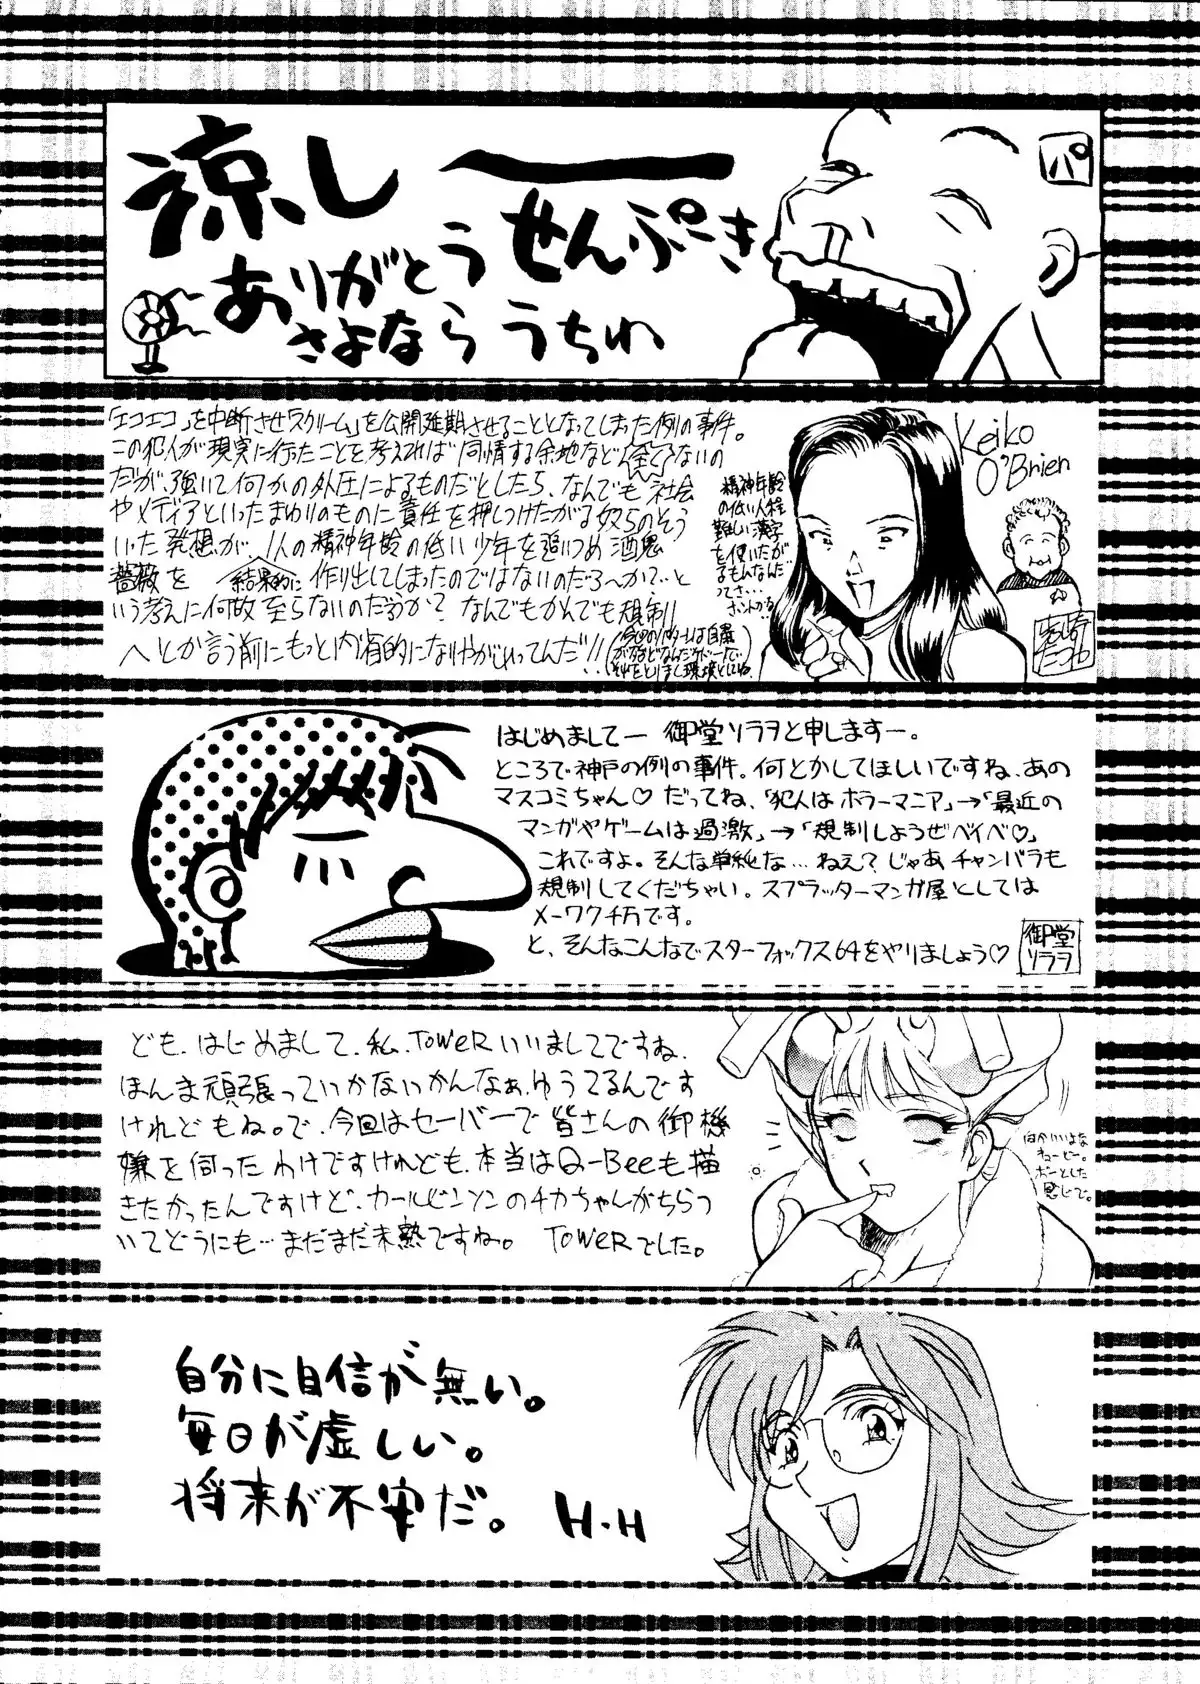 涼しー
ありがとう せんぷーき
さよなら うちわ
パ
「エコエコ」を中断させ「スクリーム」を公開延期させることとなってしまった例の事件。
この犯人が現実に行ったことを考えれば同情する余地など全くないの
だが、強いて何かの外圧によるものだとしたら、なんでも社会
やメディアといったまわりのものに責任を押しつけたがる奴らのそう
いった発想が、1人の精神年齢の低い少年を追いつめ酒鬼
薔薇を結果的に作り出してしまったのではないのだろーか?…と
いう考えに何故至らないのだろうか? なんでもかんでも規制
へとか言う前にもっと内省的になりやがれってんだ!!
精神年齢
の低い人程
難しい漢字
を使いたが
るもんなんだ
ってさ…
Keiko
O'Brien
はじめましてー 御堂ソラヲと申しますー。
ところで神戸の例の事件。何とかしてほしいですね、あの
マスコミちゃん♡ だってね、「犯人はホラーマニア」→「最近の
マンガやゲームは過激」→「規制しようぜベイベ♡」
これですよ。そんな単純な…ねえ?じゃあチャンバラも
規制してくだちゃい。スプラッターマンガ屋としては
メーワク千万です。
と、そんなこんなでスターフォックス64をやりましょう♡
御堂
ソラヲ
ども、はじめまして、私、TOWERいいましてですね、
ほんま頑張っていかないかんなぁ、ゆうてるんです
けれどもね。で、今回はセーバーで皆さんの御機
嫌を伺ったわけですけれども、本当はQ-Beeも描
きたかったんですけど、カールビンソンのチカちゃんがちらつ
いてどうにも…まだまだ未熟ですね。 TOWERでした。
ほかいいよな
キューピー。
ボーとした
感じで。
自分に自信が無い。
毎日が虚しい。
将来が不安だ。 H.H